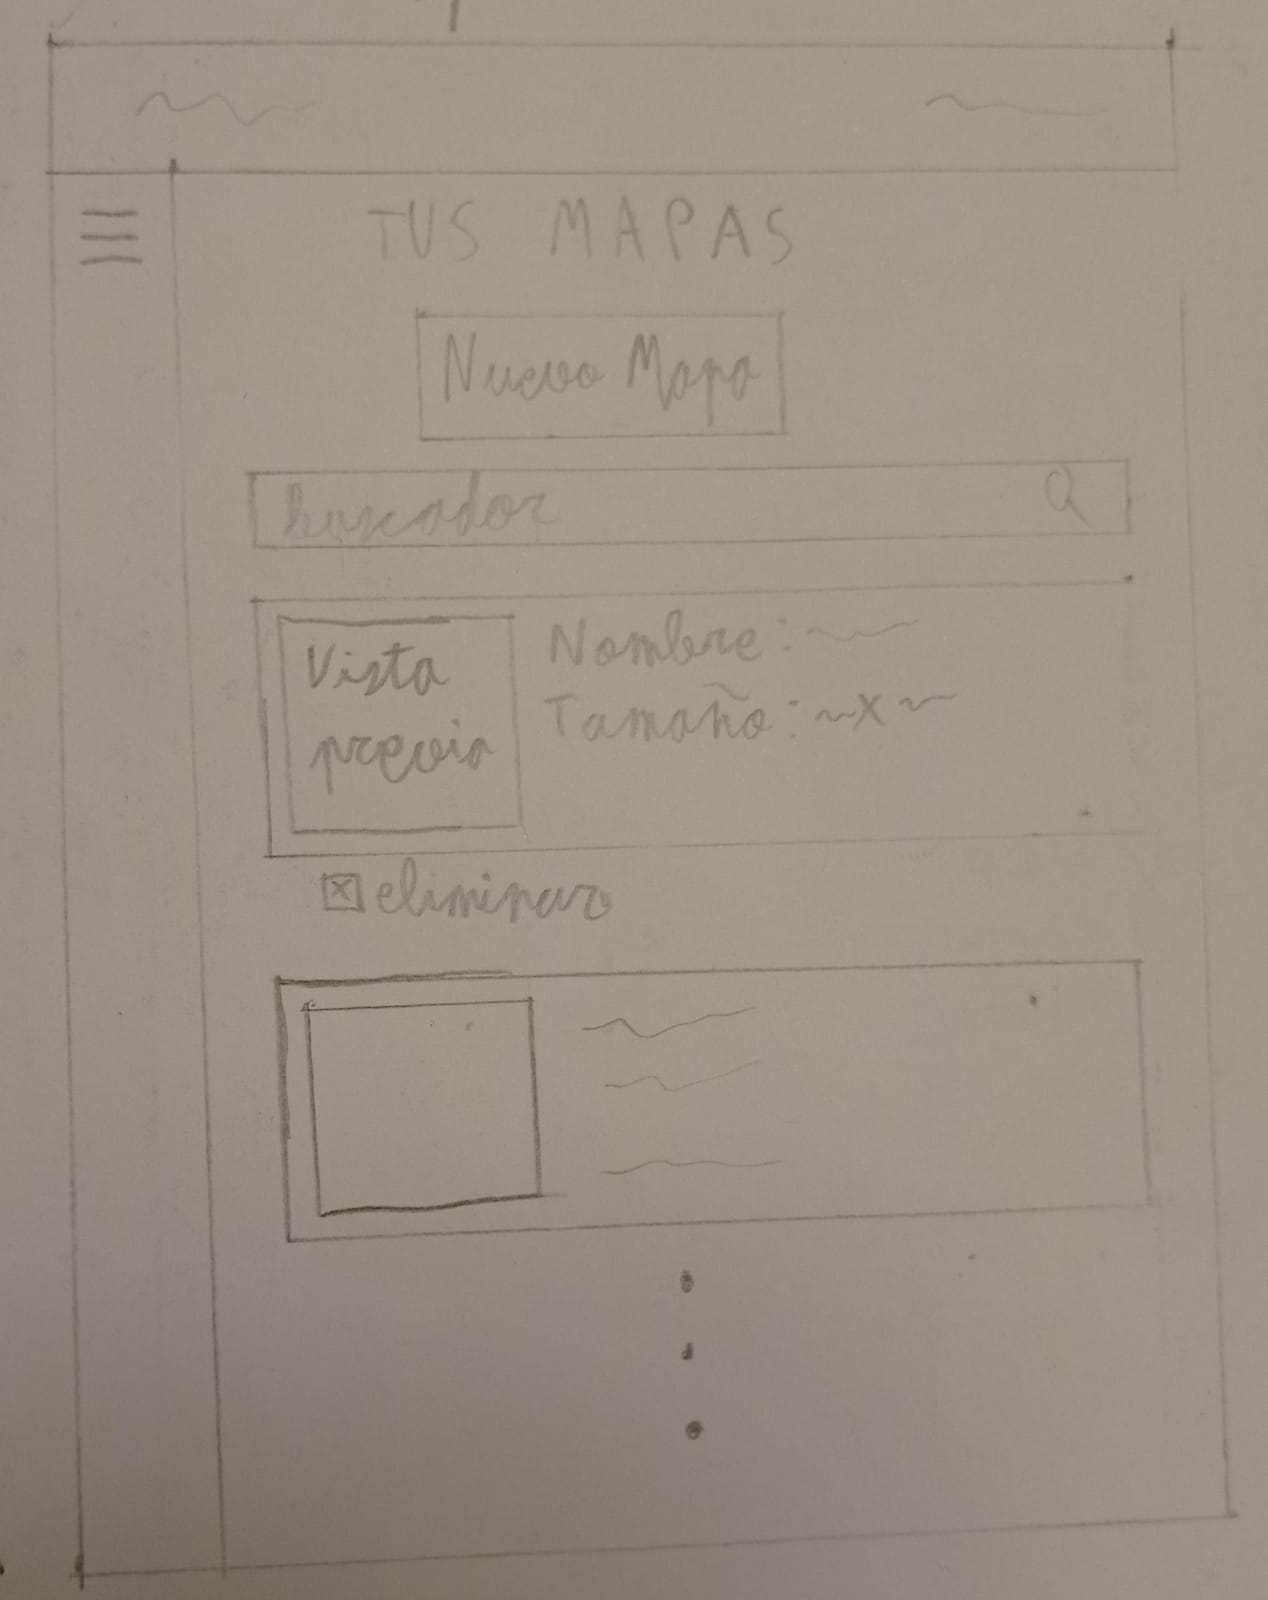 TUS MAPAS
Nuevo Mapa
buscador
Vista
previa
Nombre:
Tamaño: x
eliminar